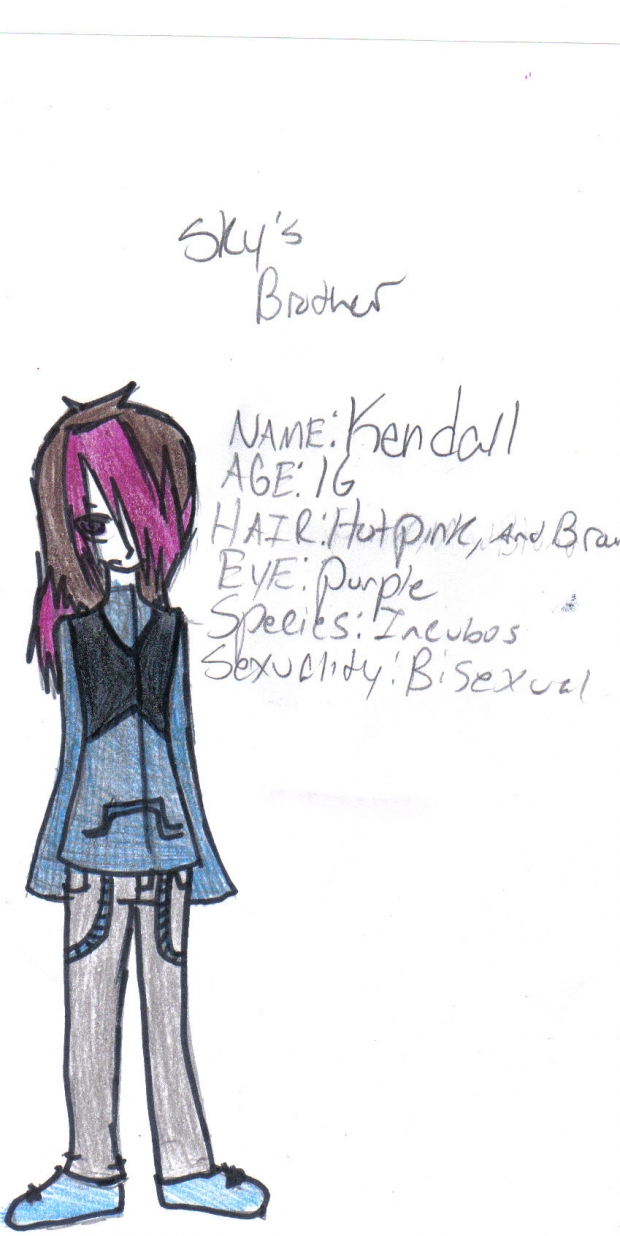 Sky's
Brother
NAME: Kendall
AGE: 16
HAIR: Hot pink, and Brow
EYE: Purple
Species: Incubos
Sexuality: Bisexual